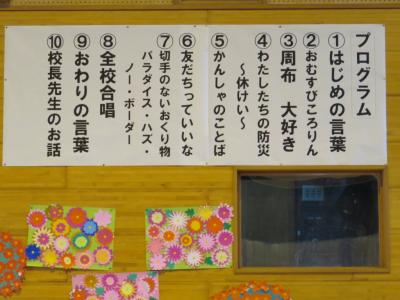 プログラム
①はじめの言葉
②おむすびころりん
③周布 大好き
④わたしたちの防災
～休けい～
⑤かんしゃのことば
⑥友だちっていいな
⑦切手のないおくり物
パラダイス・ハズ・
ノー・ボーダー
⑧全校合唱
⑨おわりの言葉
⑩校長先生のお話